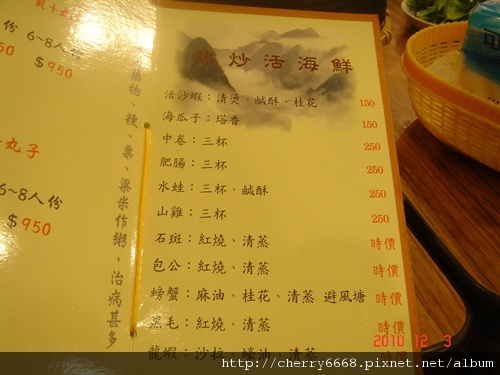 貝十丸
6~8人份
50
$950
丸子
6~8人份
$950
藥物、粳、粟、梁米作粥，治病甚多
熱炒活海鮮
活沙蝦：清燙、鹹酥、桂花 150
海瓜子：塔香 150
中卷：三杯 250
肥腸：三杯 250
水蛙：三杯、鹹酥 250
山雞：三杯 250
石斑：紅燒、清蒸 時價
包公：紅燒、清蒸 時價
螃蟹：麻油、桂花、清蒸 避風塘 時價
黑毛：紅燒、清蒸 時價
龍蝦：沙拉、蠔油、清蒸
2010 12 3
http://cherry6668.pixnet.net/album